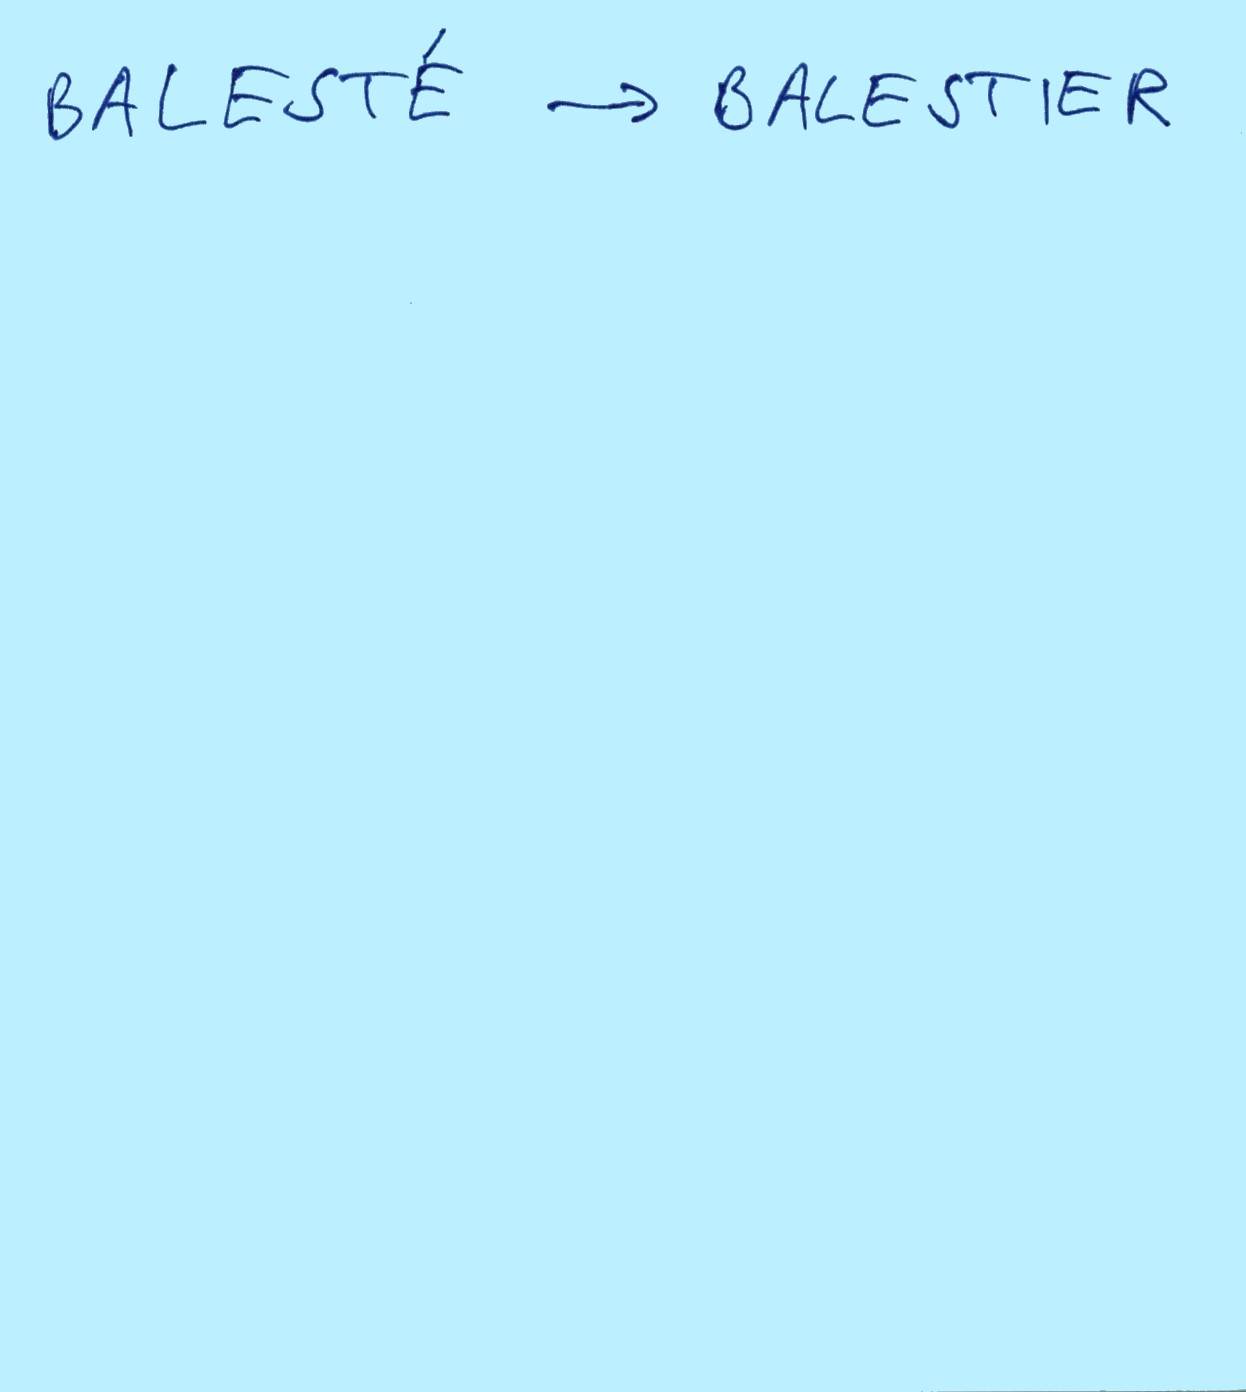 BALESTÉ → BALESTIER